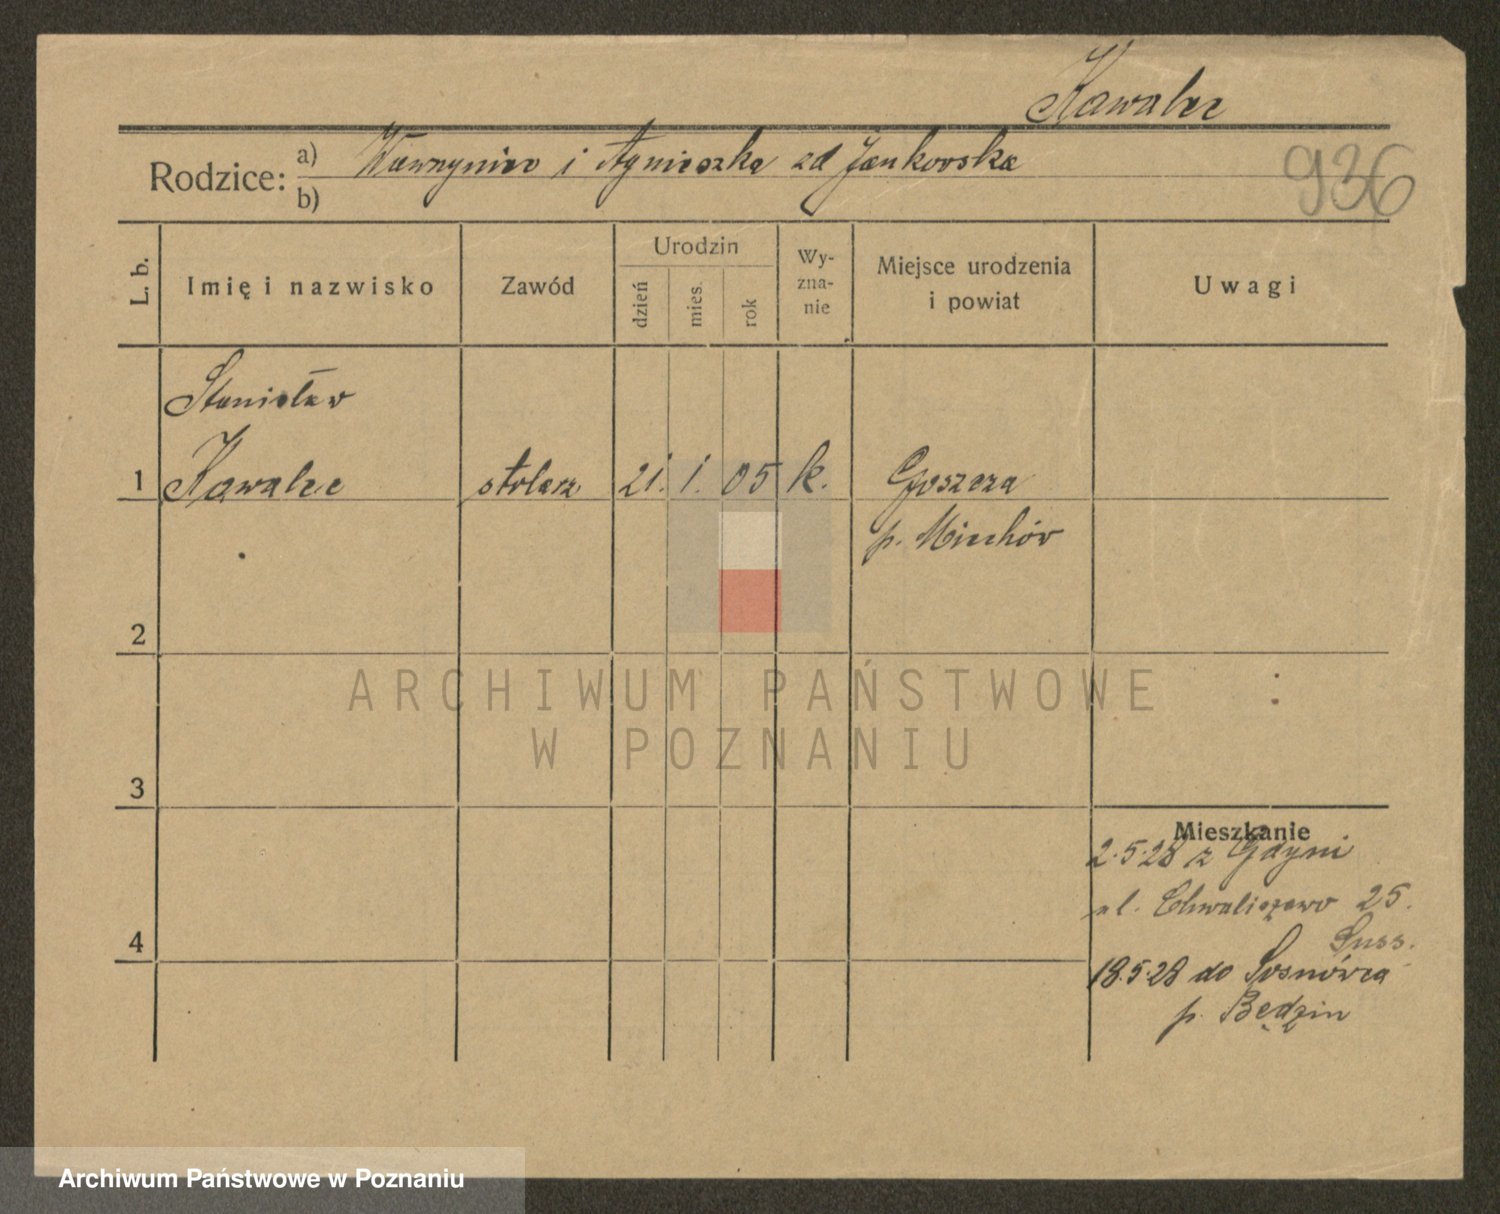 Kawalec
Rodzice: a) Wawrzyniec i Agnieszka zd Jankowska
b)
936
L. b. Imię i nazwisko Zawód Urodzin dzień mies. rok Wy-zna-nie Miejsce urodzenia i powiat Uwagi
Stanisław
1 Kawalec stolarz 21. 1. 05 k. Goszcza
p. Miechów
2
ARCHIWUM PAŃSTWOWE
W POZNANIU
3
Mieszkanie
2.5.28 z Gdyni
ul. Chwaliszewo 25.
4
18.5.28 do Sosnówca
p. Będzin
Archiwum Państwowe w Poznaniu